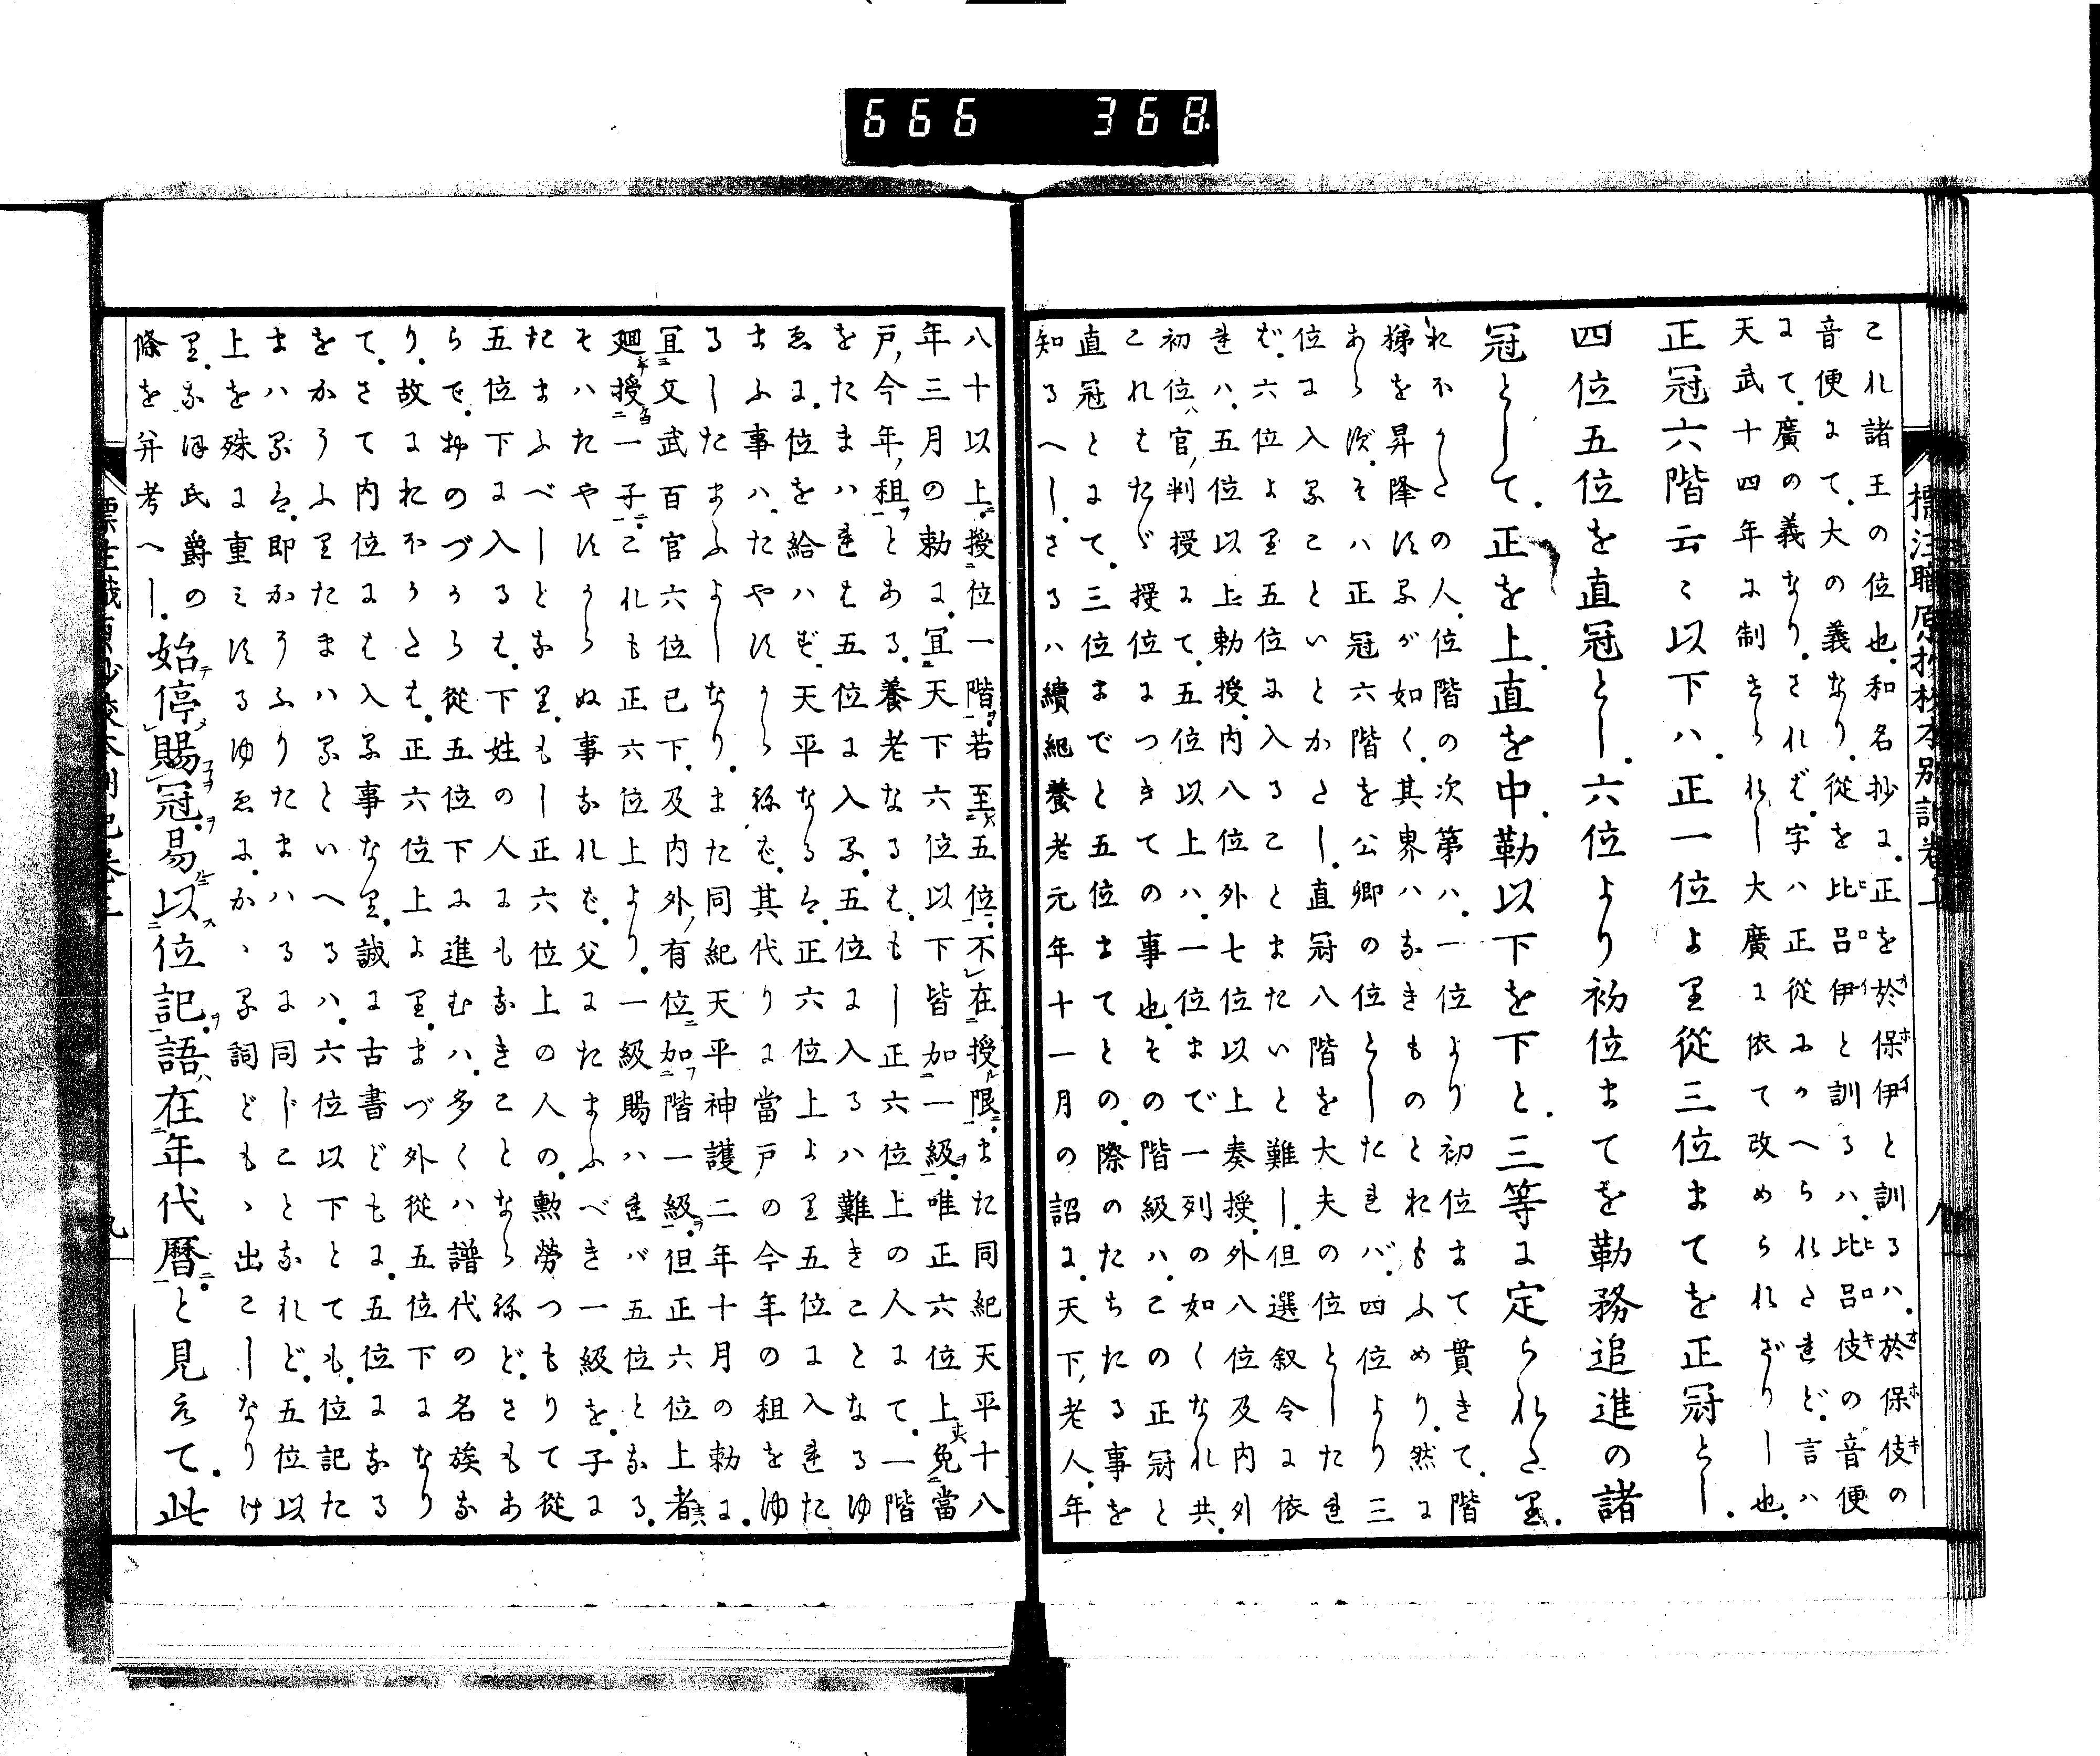 666 368
標注職原抄校本別記卷上
八
これ諸王の位也、和名抄に、正を於保伊と訓るハ、於保伎の
音便にて、大の義なり、從を比呂伊と訓るハ、比呂伎の音便
にて、廣の義なり、されど、字ハ正從にかへられたれど、言ハ
天武十四年に制せられし大廣に依て改められざりし也、
正冠六階云々以下ハ、正一位より從三位までを正冠とし、
四位五位を直冠とし、六位より初位までを勤務追進の諸
冠として、正を上、直を中、勤以下を下と、三等に定られたり、
れおのしの人、位階の次第ハ、一位より初位まて貫きて、階
梯を昇降するが如く、其界ハなきものとおもふめり、然に
あらず、そハ正冠六階を公卿の位としたれバ、四位より三
位に入ることいとかたし、直冠八階を大夫の位としたれ
ば、六位より五位に入ることまたいと難し、但選叙令に依
れハ、五位以上勅授、内八位外七位以上奏授、外八位及内外
初位ハ官判授にて、五位以上ハ、一位まで一列の如くなれ共、
これはたゞ授位につきての事也、その階級ハ、この正冠と
直冠とにて、三位までと五位までとの、際のたちたる事を
知るへし、さるハ續紀養老元年十一月の詔に、天下老人、年
八十以上、授位一階、若至五位、不在授限、また同紀天平十八
年三月の勅に、宜天下六位以下皆加一級、唯正六位上免當
戸今年租とある、養老なるは、もし正六位上の人にて、一階
をたまハれは五位に入る、五位に入るハ難きことなるゆ
ゑに、位を給ハず、天平なるは、正六位上より五位に入れた
まふ事ハ、たやすからねば、其代りに當戸の今年の租をゆ
るしたまふよしなり、また同紀天平神護二年十月の勅に、
宜文武百官六位已下、及内外有位加階一級、但正六位上者
廻授一子、これも正六位上より、一級賜ハれバ五位となる、
そハたやすからぬ事なれば、父にたまふべき一級を、子に
たまふべしとなり、もし正六位上の人の、勲勞つもりて從
五位下に入るは、下姓の人にもなきことならねど、さもあ
らで、おのづから從五位下に進むハ、多くハ譜代の名族な
り、故におほかたは、正六位上より、まづ外從五位下になり
て、さて内位には入る事なり、誠に古書どもに、五位になる
をかうふりたまハるといへるハ、六位以下とても、位記た
まハるは、即かうふりたまハるに同じことなれど、五位以
上を殊に重みするゆゑに、かゝる詞どもゝ出こしなりけ
り、なほ氏爵の條を并考へし、始停賜冠、易以位記、語在年代曆と見えて、此
標注職原抄校本別記卷上
九